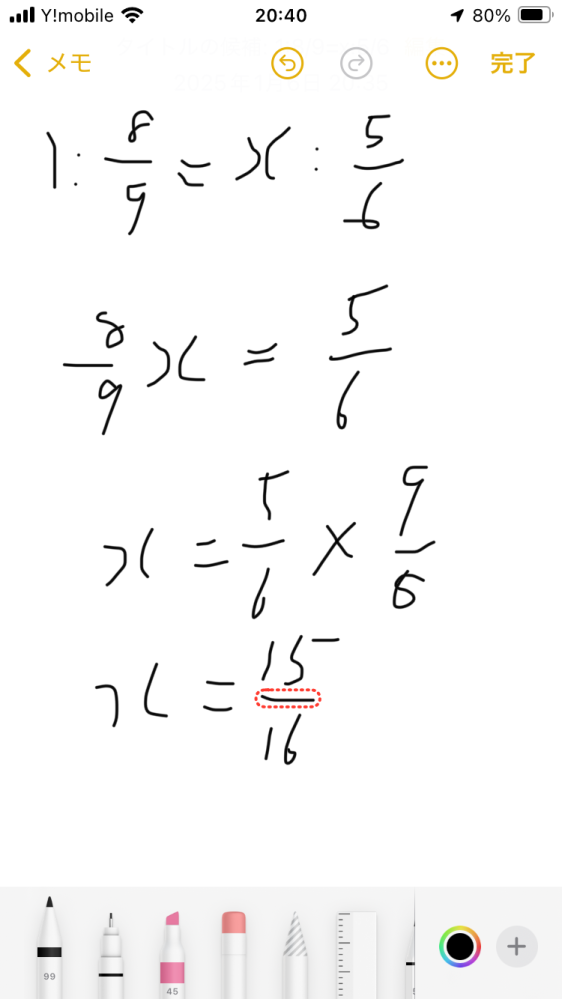 Y!mobile 20:40 80%
メモ 完了
1 : 8/9 = x : 5/6
8/9 x = 5/6
x = 5/6 × 9/8
x = 15/16
99 45